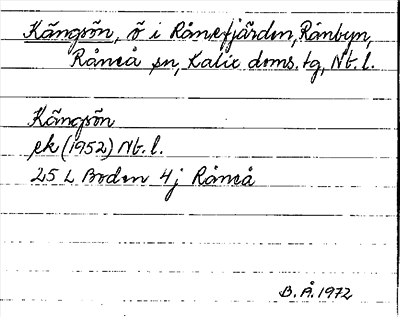 Kängsön, ö i Rånefjärden, Rånbyn,
Råneå sn, Kalix doms. tg, Nb. l.
Kängsön
ek (1952) Nb. l.
25 L Boden 4j Råneå
B. Å. 1972